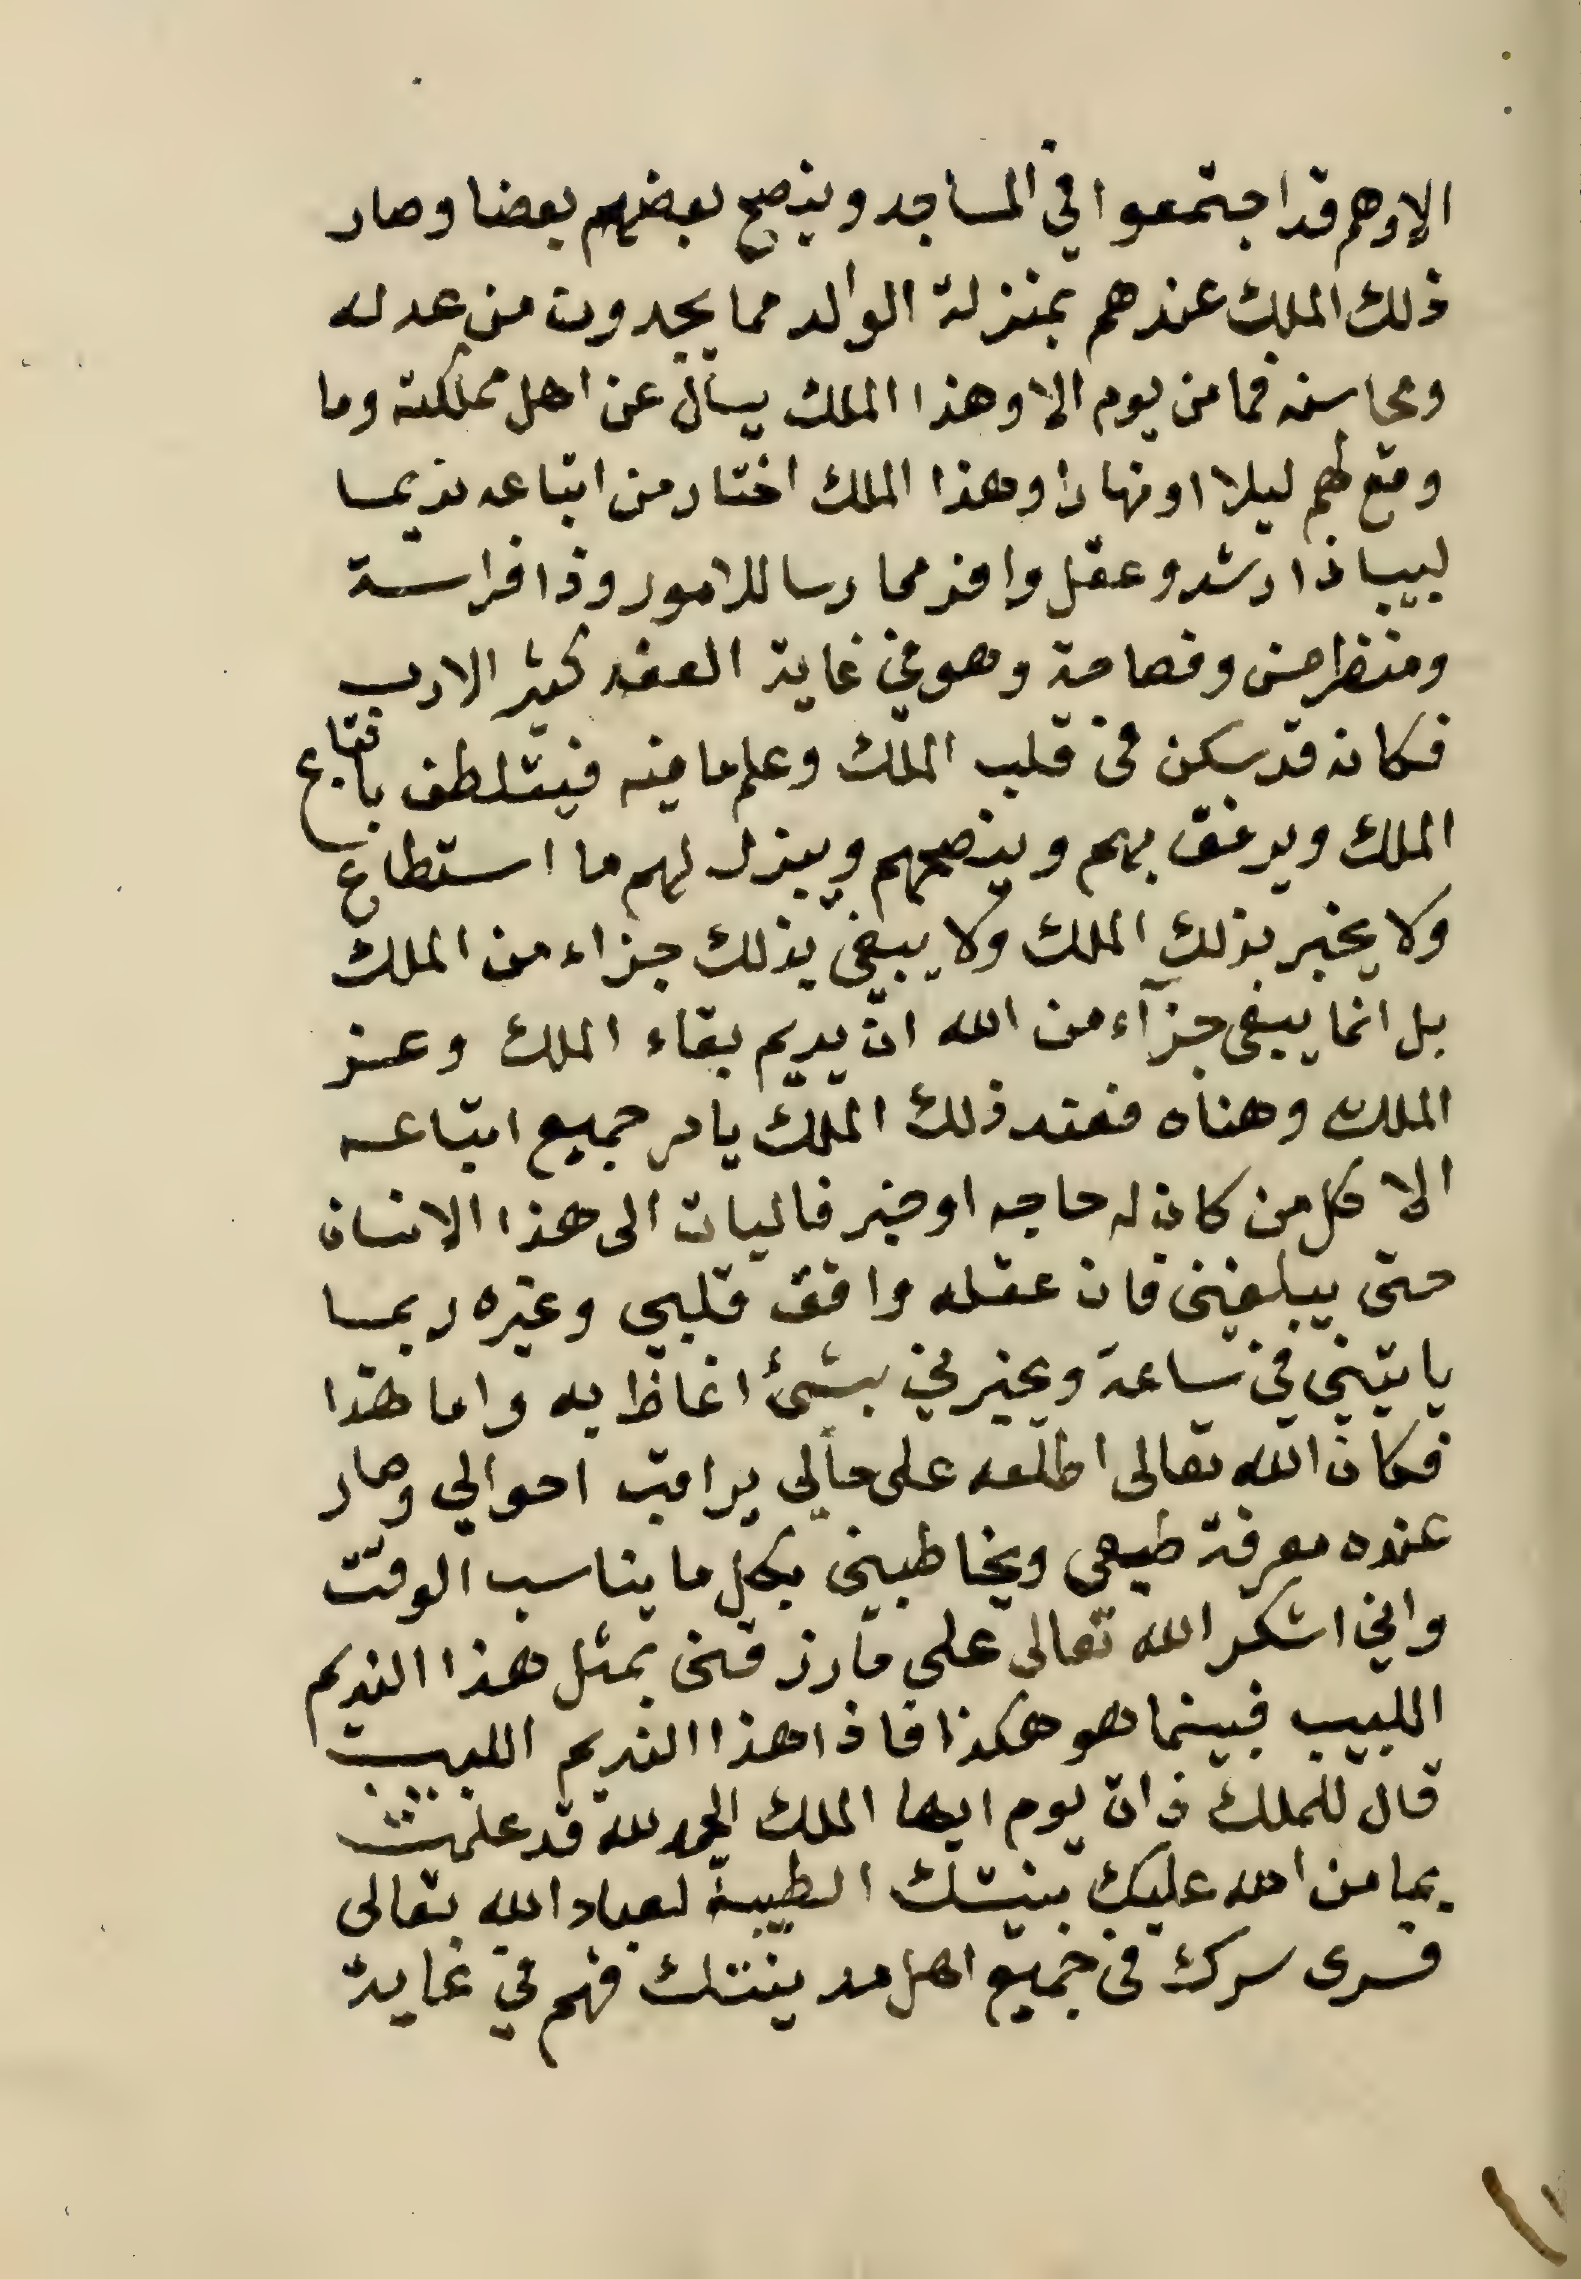 الا وهم قد اجتمعوا في المساجد وينصح بعضهم بعضا وصار
ذلك الملك عندهم بمنزلة الوالد مما يجدون من عدله
ومحاسنه فما من يوم الا وهذا الملك يسأل عن اهل مملكته وما
وقع لهم ليلا او نهارا وهذا الملك اختار من اتباعه نديما
لبيبا ذا رشد وعقل وافر ممارسا للامور وذا فراسة
ومنظر حسن وفصاحة وهو في غاية العفه كثير الادب
فكانه قد سكن في قلب الملك وعلم ما فيه فيتلطف باتباع
الملك ويرفق بهم وينصحهم ويبذل لهم ما استطاع
ولا يخبر بذلك الملك ولا يبغي بذلك جزاء من الملك
بل انما يبغي جزآء من الله ان يديم بقاء الملك وعز
الملك وهناه فعند ذلك الملك يامر جميع اتباعه
الا كل من كان له حاجه او خبر فاليات الى هذا الانسان
حتى يبلغني فان عقله وافق قلبي وغيره ربما
ياتيني في ساعة ويخبرني بشئ اغاظ به واما هذا
فكان الله تعالى اطلعه على حالي يراقب احوالي وصار
عنده معرفة طبعي ويخاطبني بكل ما يناسب الوقت
واني اشكر الله تعالى على ما رزقني بمثل هذا النديم
اللبيب فبينما هو هكذا فاذا هذا النديم اللبيب
قال للملك ذات يوم ايها الملك الحمد لله قد علمت
بما من الله عليك بنيتك الطيبة لعباد الله تعالى
فسرى سرك في جميع اهل مدينتك فهم في غاية